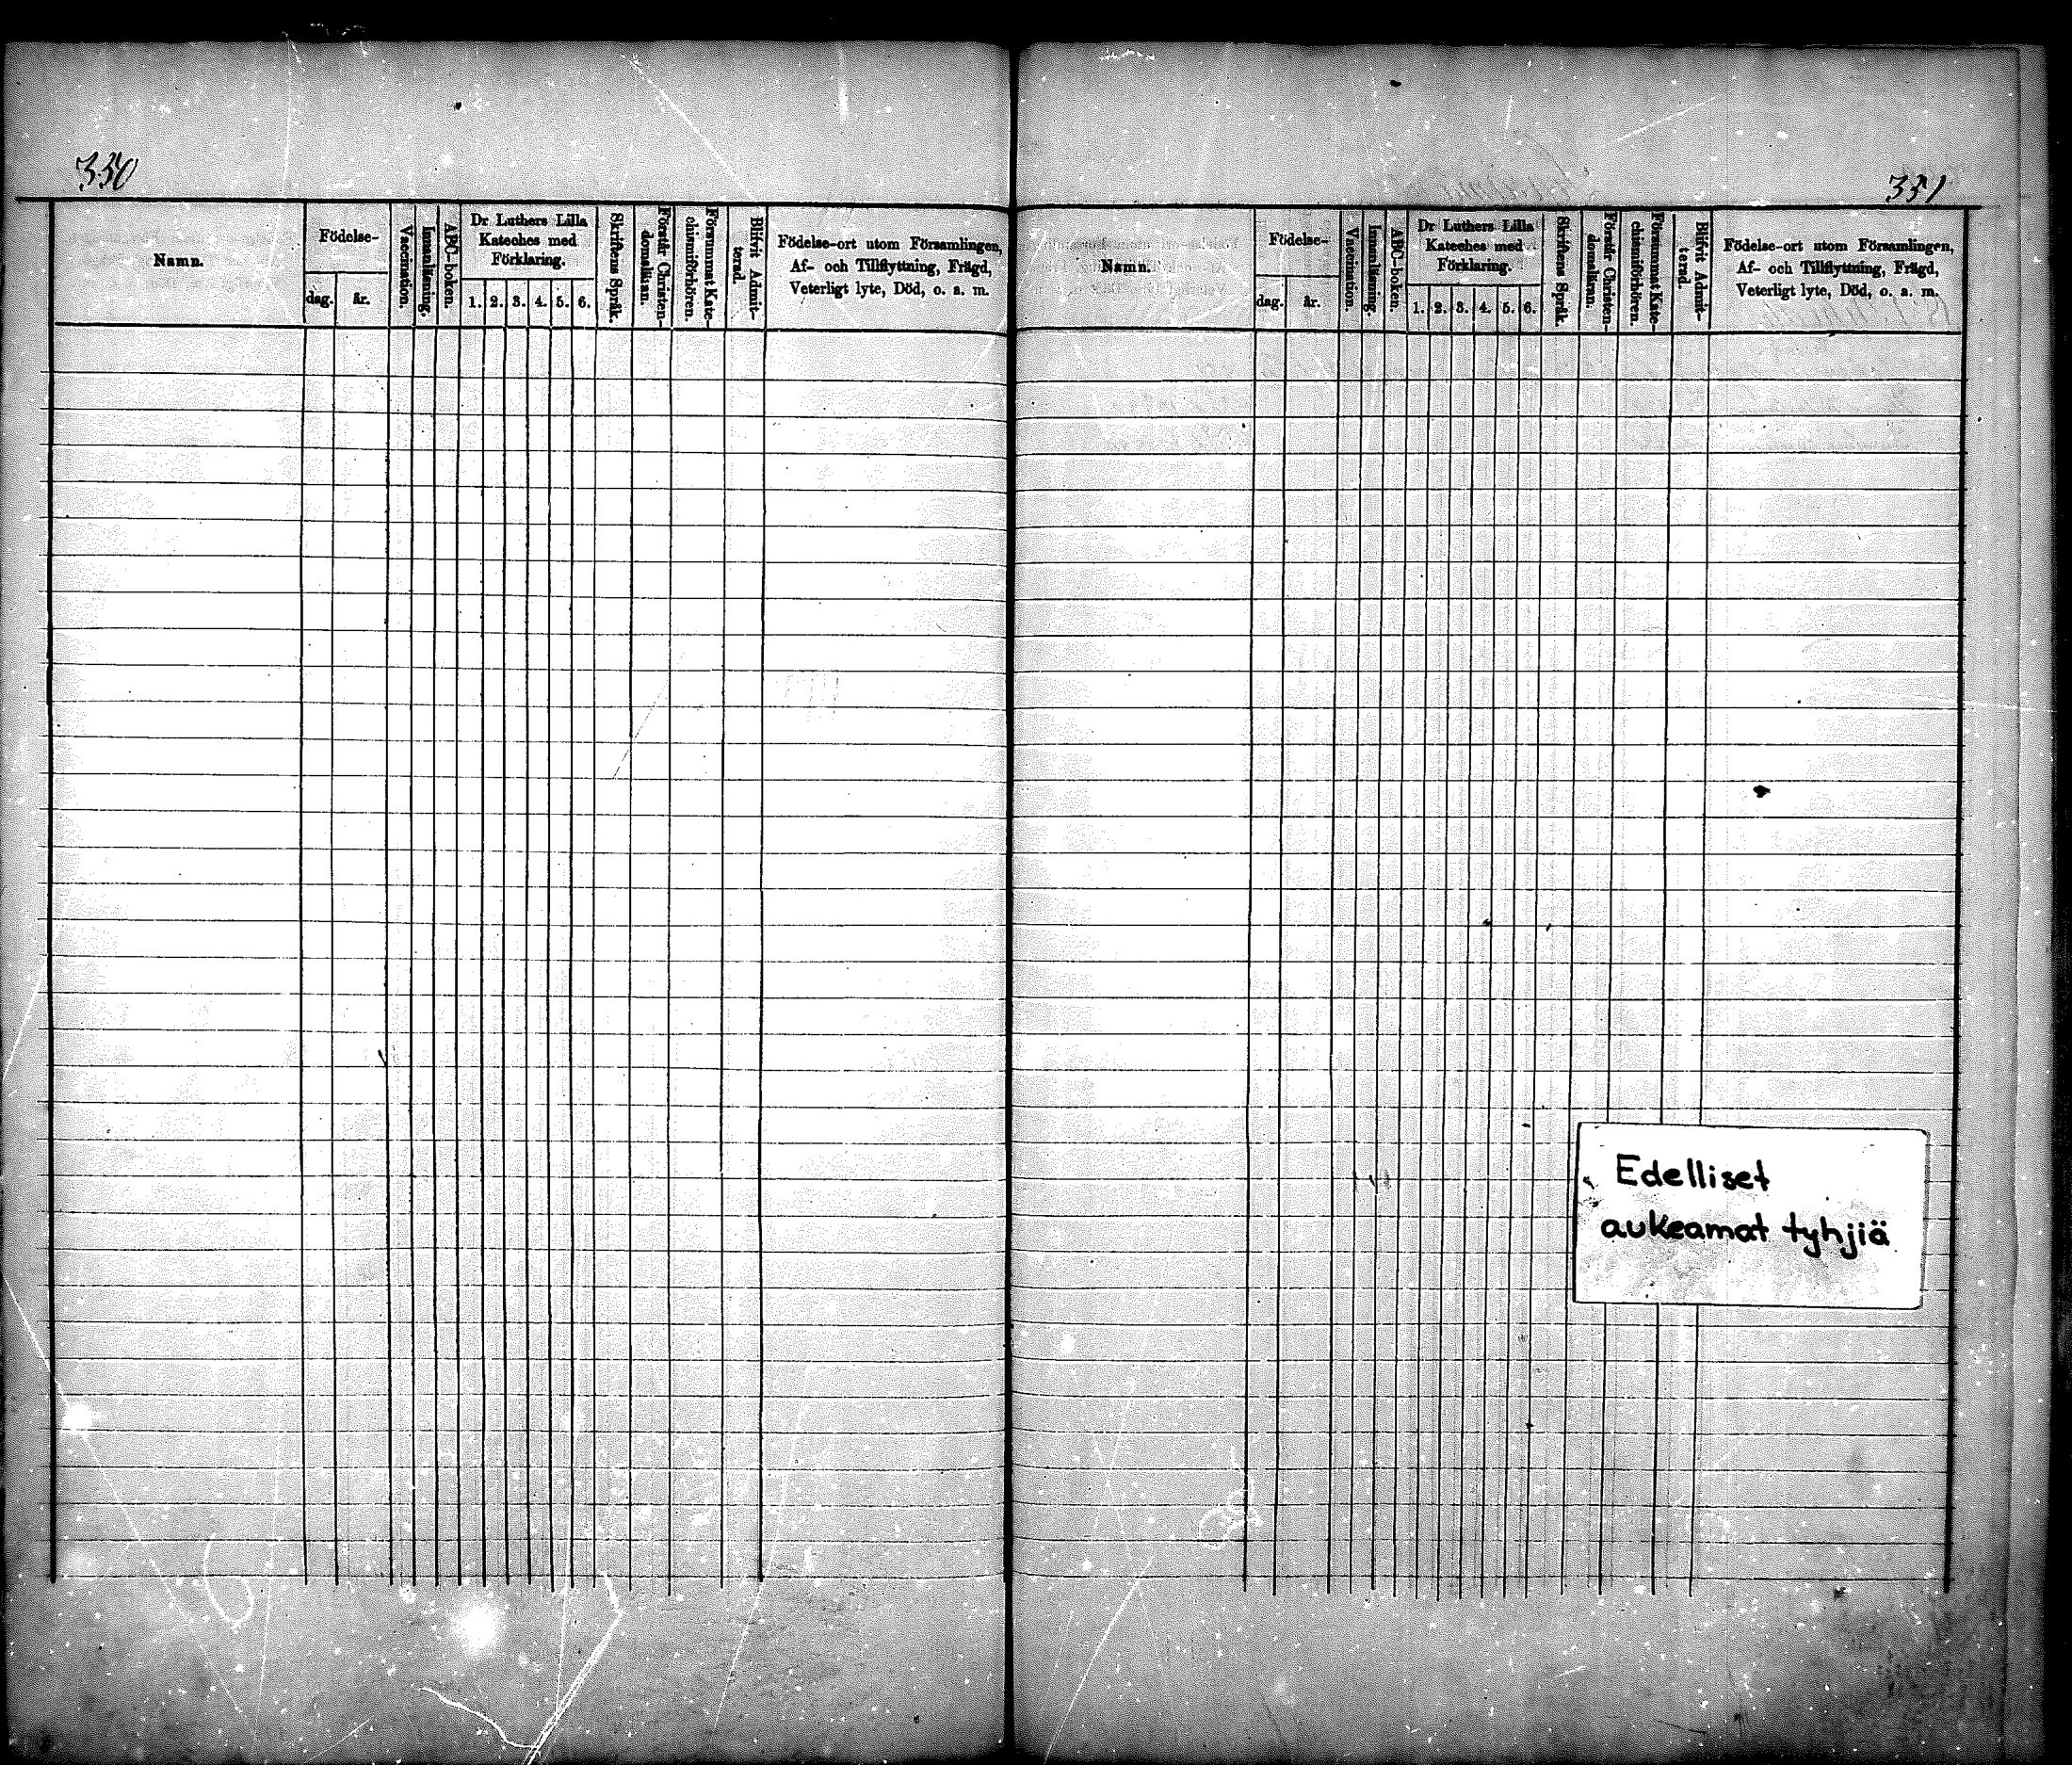 350
Namn.
Födelse-
dag.
år.
Vaccination.
Innanläsning.
ABC-boken.
Dr Luthers Lilla
Kateches med
Förklaring.
1. 2. 3. 4. 5. 6.
Skriftens Språk.
Förstår Christen-
domsläran.
Försummat Kate-
chismiförhören.
Blifvit Admit-
terad.
Födelse-ort utom Församlingen,
Af- och Tillflyttning, Frägd,
Veterligt lyte, Död, o. a. m.
351
Namn.
Födelse-
dag.
år.
Vaccination.
Innanläsning.
ABC-boken.
Dr Luthers Lilla
Kateches med
Förklaring.
1. 2. 3. 4. 5. 6.
Skriftens Språk.
Förstår Christen-
domsläran.
Försummat Kate-
chismiförhören.
Blifvit Admit-
terad.
Födelse-ort utom Församlingen,
Af- och Tillflyttning, Frägd,
Veterligt lyte, Död, o. a. m.
Edelliset
aukeamat tyhjiä